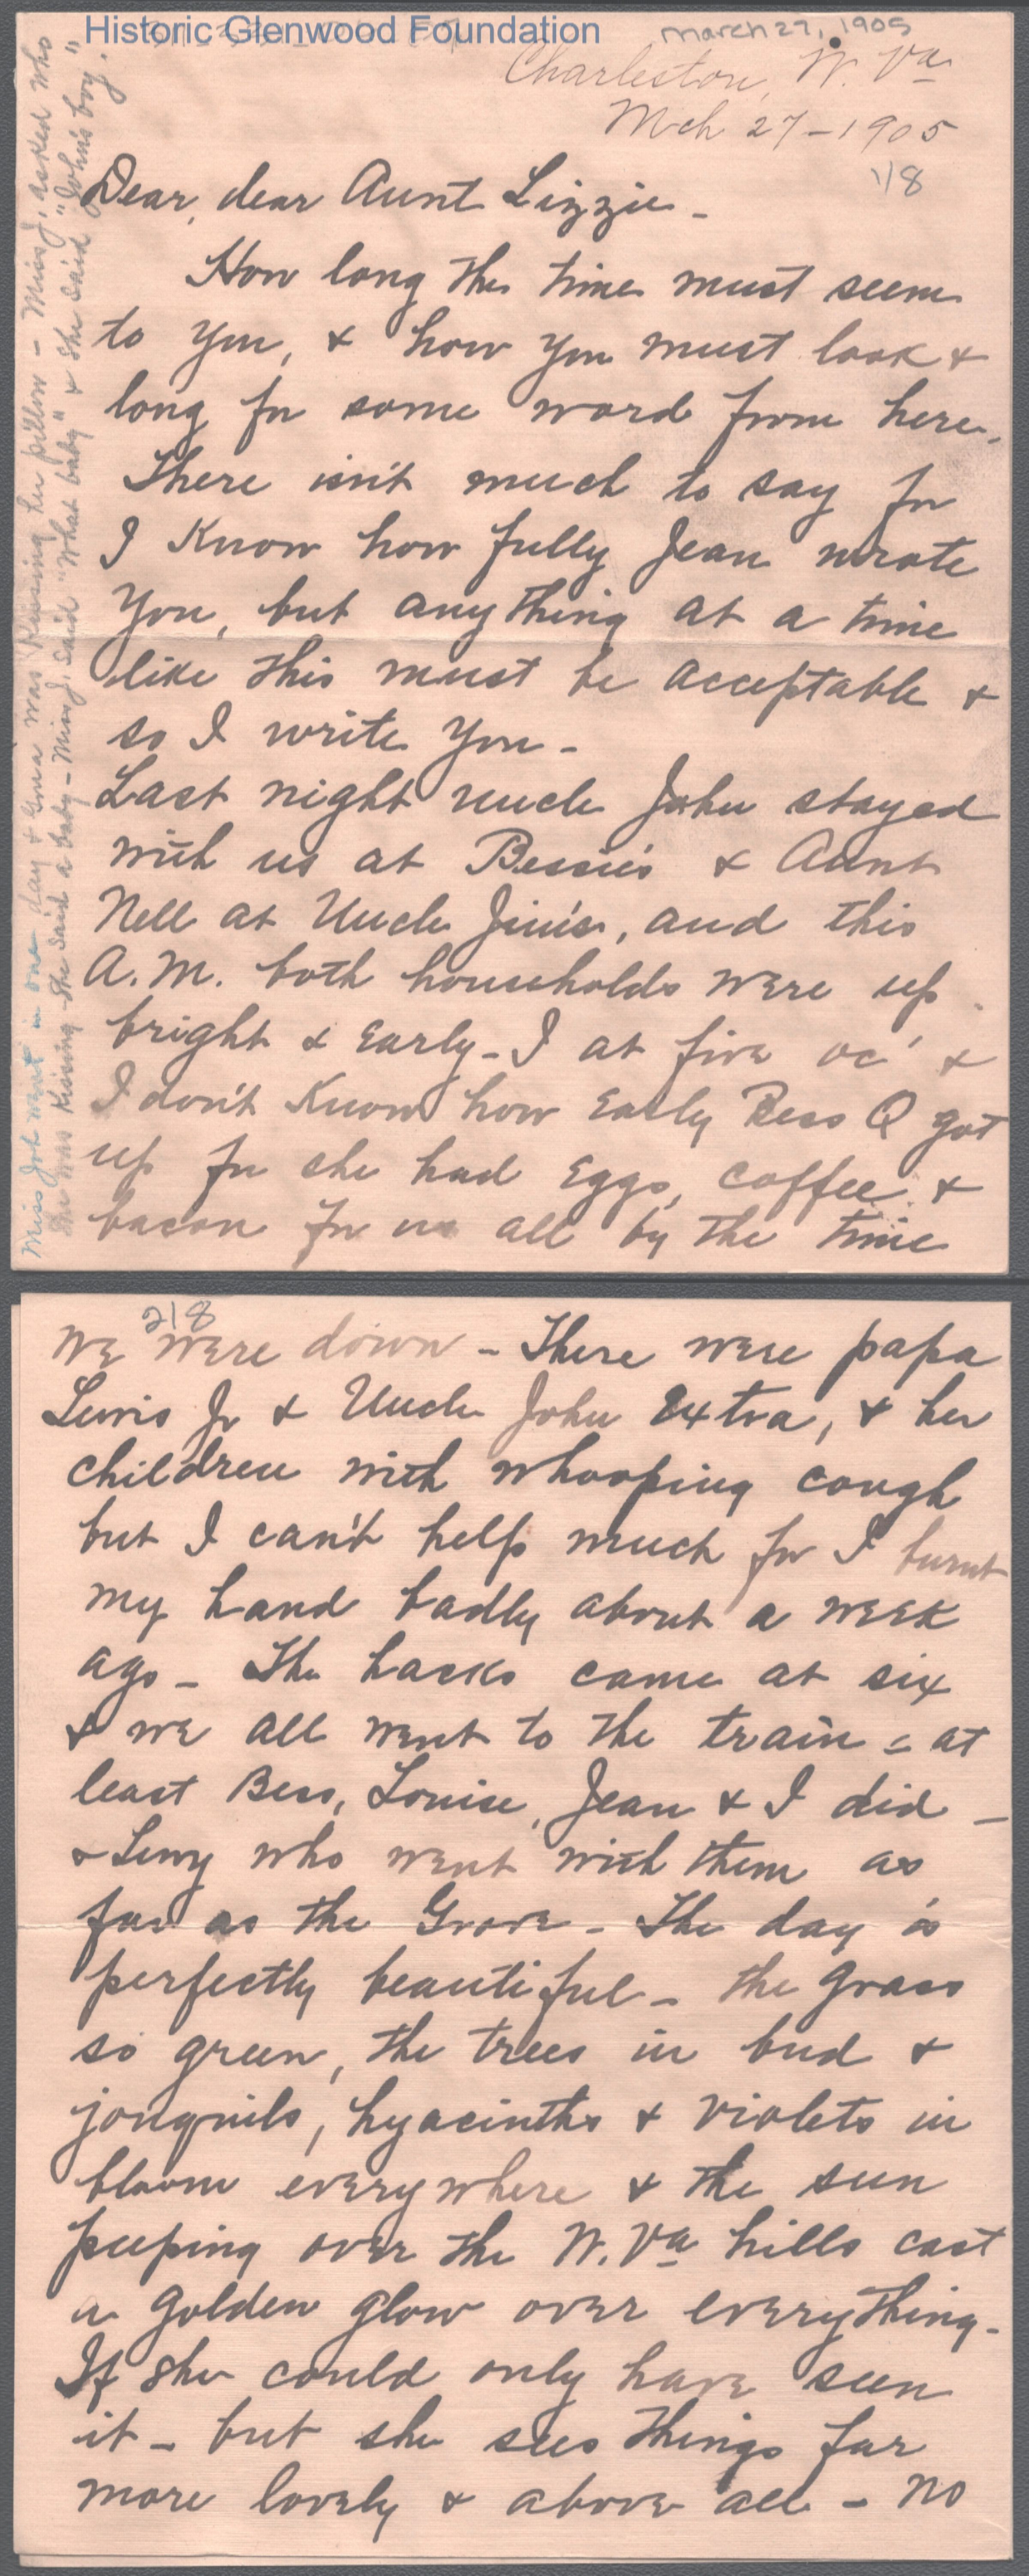 Historic Glenwood Foundation
March 27, 1905
Charleston, W. Va
Mch 27-1905
1/8
Dear, dear Aunt Lizzie -
How long the time must seem
to you, & how you must look &
long for some word from here.
There isn't much to say for
I know how fully Jean wrote
you, but anything at a time
like this must be acceptable &
so I write you -
Last night uncle John stayed
with us at Bessie's & Aunt
Nell at Uncle Jim's, and this
A.M. both households were up
bright & early - I at five oc' &
I don't know how early Bess Q got
up for she had eggs, coffee &
bacon for us all by the time
Miss Joh went in one day & Gma was kissing her pillow - Miss J. asked who
she was kissing - she said a baby - Miss J. said "What baby" & she said "John's boy."
2/8
we were down - There were papa
Lewis Jr & Uncle John extra, & her
children with whooping cough
but I can't help much for I burnt
my hand badly about a week
ago - The hacks came at six
& we all went to the train = at
least Bess, Louise, Jean & I did -
& Lewy who went with them as
far as the Grove - The day is
perfectly beautiful - the grass
so green, the trees in bud &
jonquils, hyacinths & violets in
bloom everywhere & the sun
peeping over the W. Va hills cast
a golden glow over everything -
If she could only have seen
it - but she sees things far
more lovely & above all - no